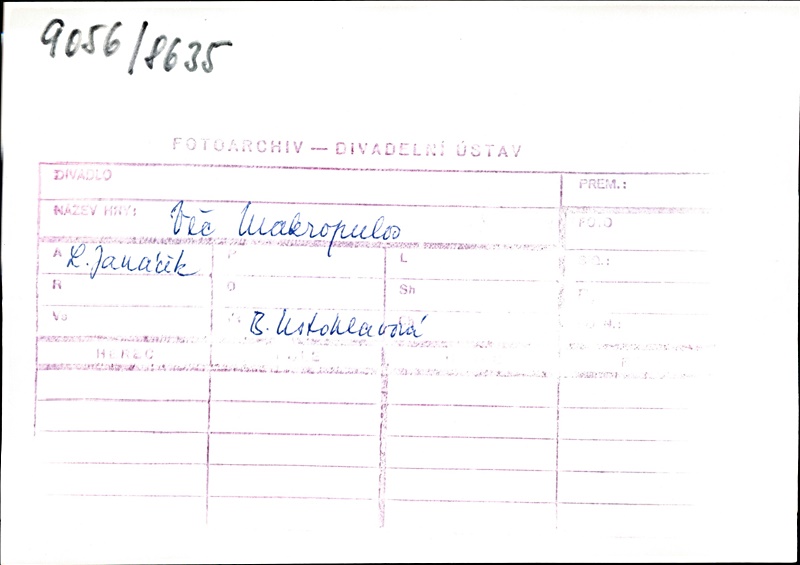 9056/8635
FOTOARCHIV — DIVADELNÍ ÚSTAV
DIVADLO
PREM.:
NÁZEV HRY: Věc Makropulos
FOTO
A L. Janáček
L
R
O
Sh
Vo
HEREC